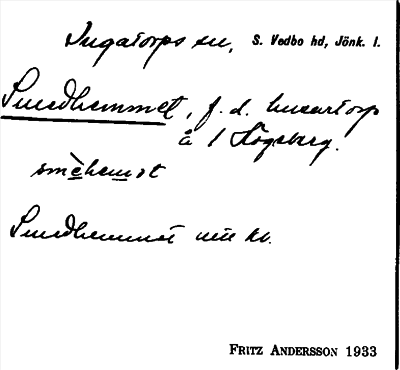 Ingatorps sn, S. Vedbo hd, Jönk. l.
Smedhemmet, f. d. husartorp
å 1 Högsberg.
smèhemət
Smedhemmet uek kv.
FRITZ ANDERSSON 1933